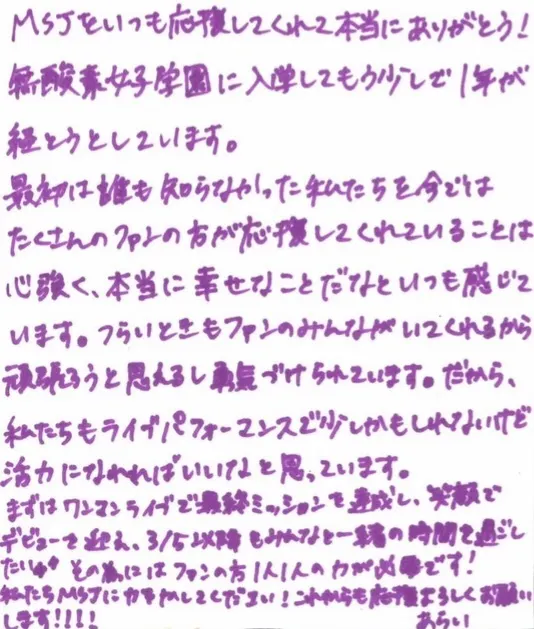 MSJをいつも応援してくれて本当にありがとう!
無酸素女子学園に入学してもう少しで1年が
経とうとしています。
最初は誰も知らなかった私たちを今では
たくさんのファンの方が応援してくれていることは
心強く、本当に幸せなことだなといつも感じて
います。つらいときもファンのみんながいてくれるから
頑張ろうと思えるし勇気づけられています。だから、
私たちもライブパフォーマンスで少しかもしれないけど
活力になれればいいなと思っています。
まずはワンマンライブで最終ミッションを達成し、笑顔で
デビューを迎え、3/5以降もみんなと一緒の時間を過ごし
たい その為にはファンの方1人1人の力が必要です!
私たちMSJに力をかしてください!これからも応援よろしくお願い
します!!!!
あらい